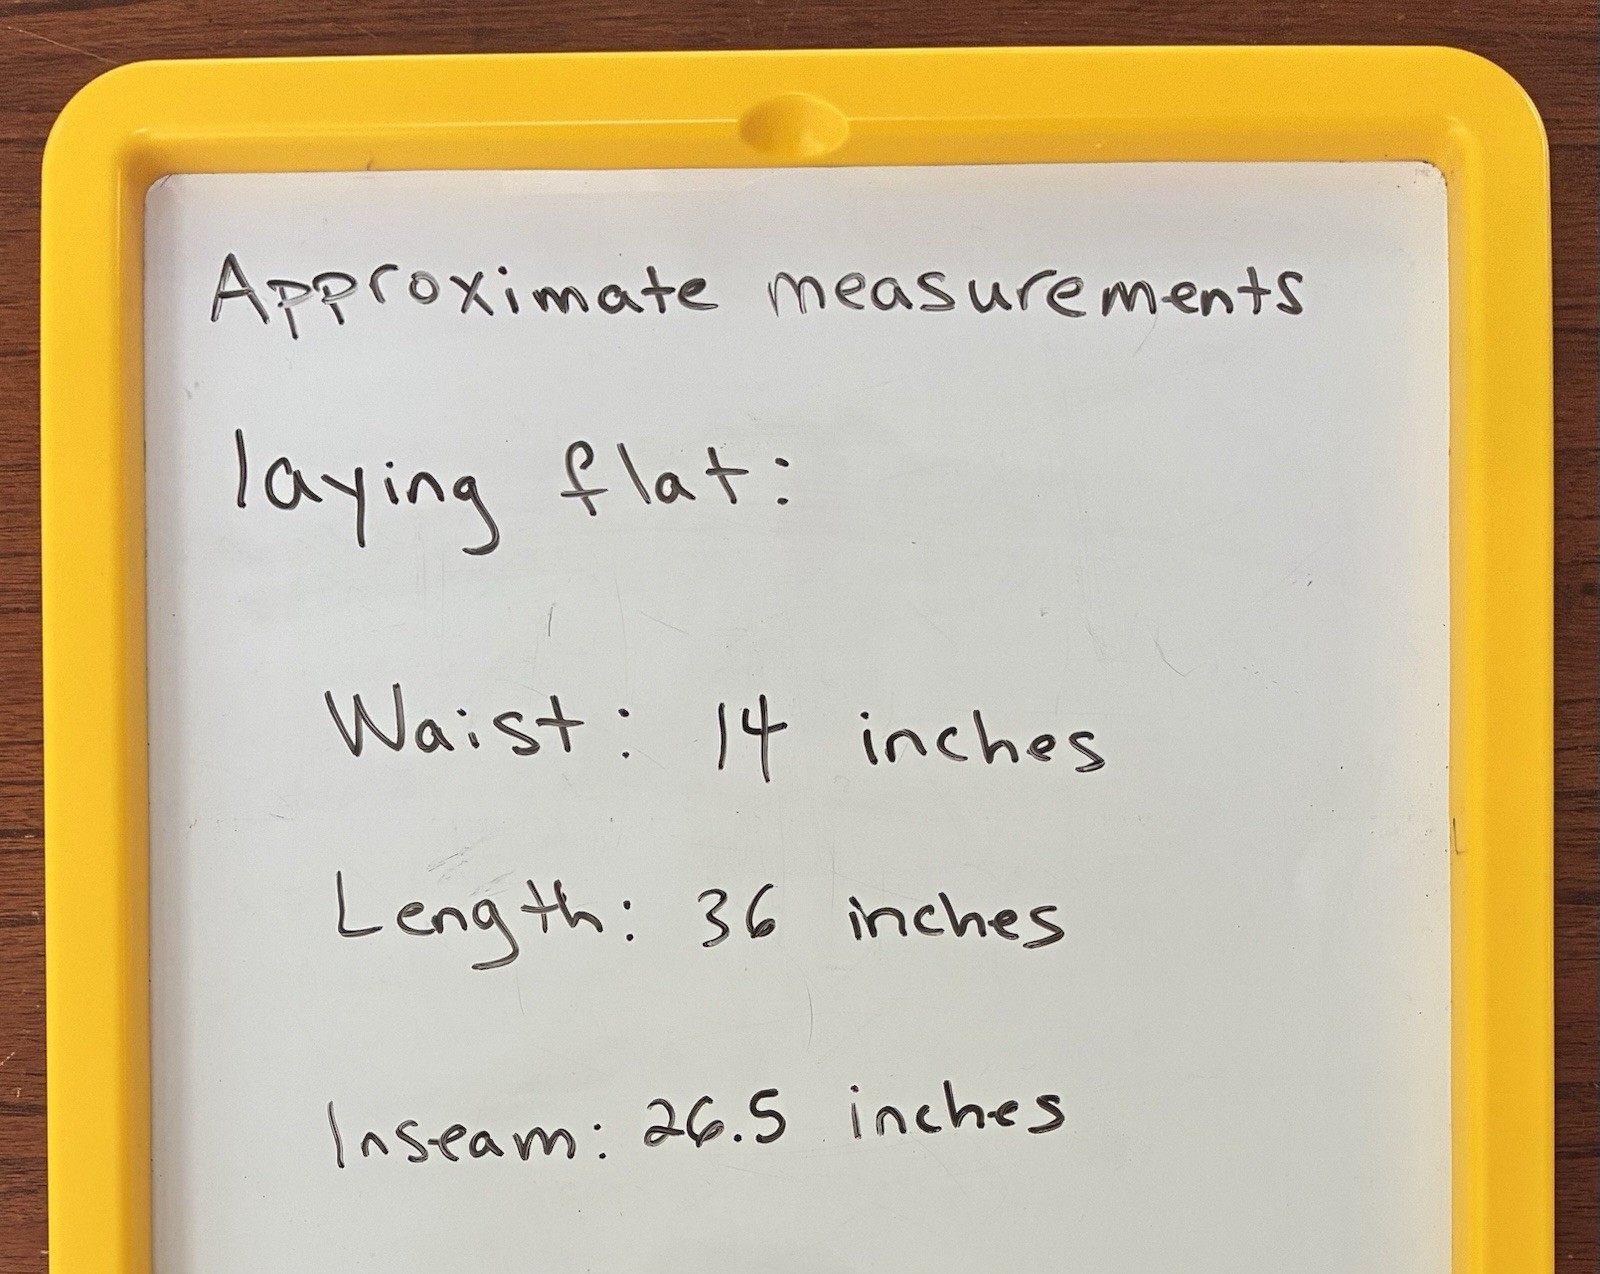 Approximate measurements
laying flat:
Waist: 14 inches
Length: 36 inches
Inseam: 26.5 inches